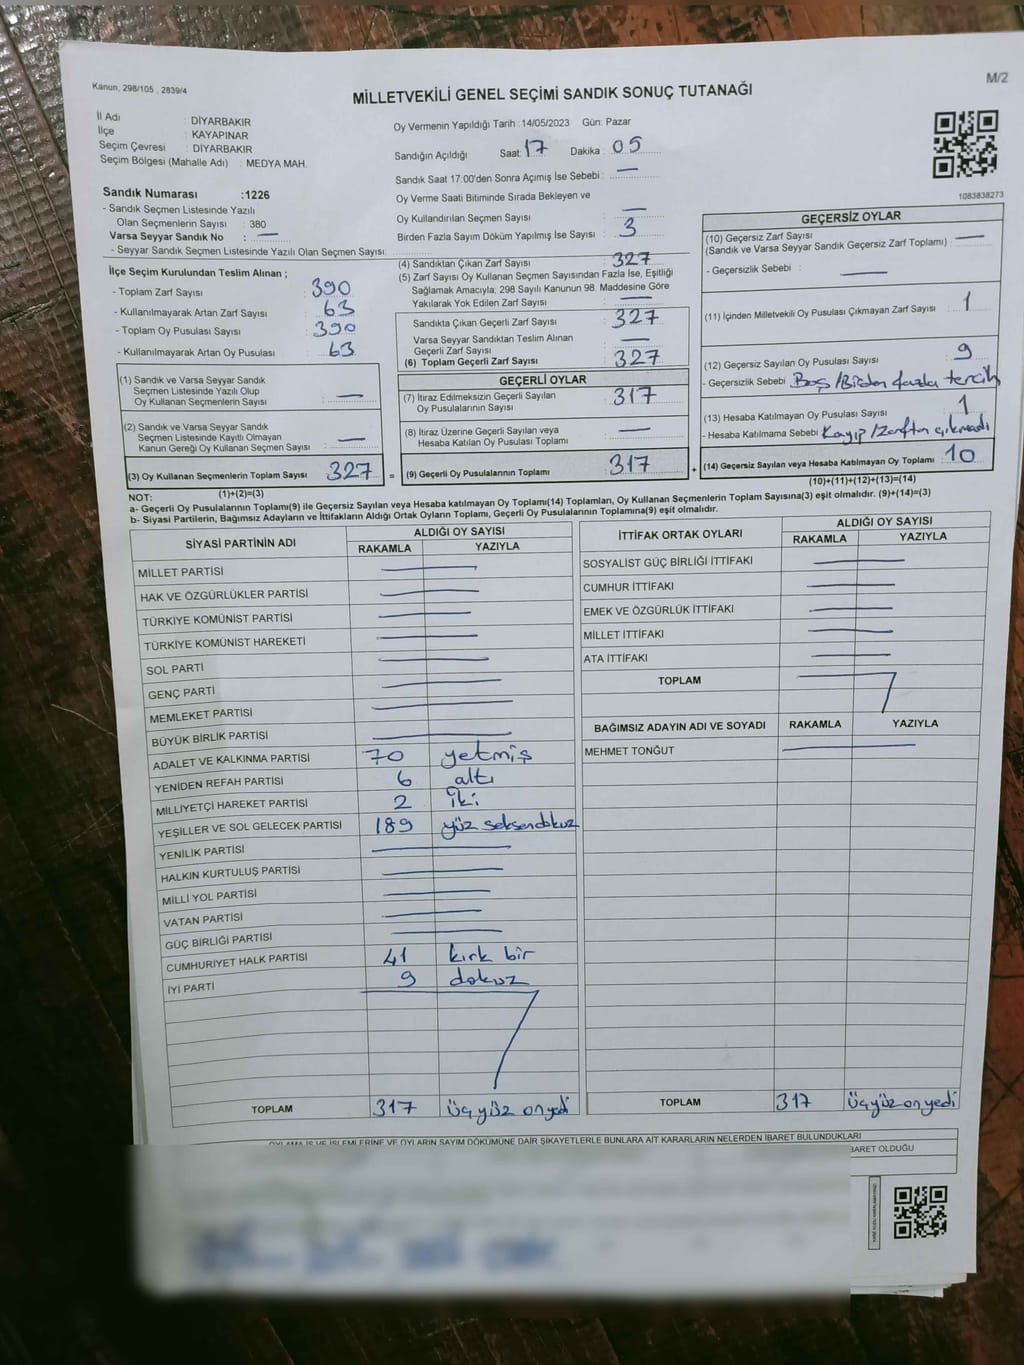 Kanun, 298/105 , 2839/4
M/2
MİLLETVEKİLİ GENEL SEÇİMİ SANDIK SONUÇ TUTANAĞI
İl Adı : DİYARBAKIR
İlçe : KAYAPINAR
Seçim Çevresi : DİYARBAKIR
Seçim Bölgesi (Mahalle Adı) : MEDYA MAH.
Sandık Numarası :1226
- Sandık Seçmen Listesinde Yazılı
Olan Seçmenlerin Sayısı : 380
Varsa Seyyar Sandık No : —
- Seyyar Sandık Seçmen Listesinde Yazılı Olan Seçmen Sayısı:
Oy Vermenin Yapıldığı Tarih :14/05/2023 Gün: Pazar
Sandığın Açıldığı Saat: 17 Dakika : 05
Sandık Saat 17:00'den Sonra Açımış İse Sebebi : —
Oy Verme Saati Bitiminde Sırada Bekleyen ve
Oy Kullandırılan Seçmen Sayısı —
Birden Fazla Sayım Döküm Yapılmış İse Sayısı : 3
1083838273
İlçe Seçim Kurulundan Teslim Alınan ;
- Toplam Zarf Sayısı : 390
- Kullanılmayarak Artan Zarf Sayısı : 63
- Toplam Oy Pusulası Sayısı : 390
- Kullanılmayarak Artan Oy Pusulası : 63
(1) Sandık ve Varsa Seyyar Sandık
Seçmen Listesinde Yazılı Olup
Oy Kullanan Seçmenlerin Sayısı —
(2) Sandık ve Varsa Seyyar Sandık
Seçmen Listesinde Kayıtlı Olmayan
Kanun Gereği Oy Kullanan Seçmen Sayısı —
(3) Oy Kullanan Seçmenlerin Toplam Sayısı 327 =
(1)+(2)=(3)
(4) Sandıktan Çıkan Zarf Sayısı 327
(5) Zarf Sayısı Oy Kullanan Seçmen Sayısından Fazla İse, Eşitliği
Sağlamak Amacıyla; 298 Sayılı Kanunun 98. Maddesine Göre
Yakılarak Yok Edilen Zarf Sayısı —
Sandıkta Çıkan Geçerli Zarf Sayısı 327
Varsa Seyyar Sandıktan Teslim Alınan
Geçerli Zarf Sayısı —
(6) Toplam Geçerli Zarf Sayısı 327
GEÇERLİ OYLAR
(7) İtiraz Edilmeksizin Geçerli Sayılan
Oy Pusulalarının Sayısı 317
(8) İtiraz Üzerine Geçerli Sayılan veya
Hesaba Katılan Oy Pusulası Toplamı —
(9) Geçerli Oy Pusulalarının Toplamı 317 +
GEÇERSİZ OYLAR
(10) Geçersiz Zarf Sayısı —
(Sandık ve Varsa Seyyar Sandık Geçersiz Zarf Toplamı)
- Geçersizlik Sebebi : —
(11) İçinden Milletvekili Oy Pusulası Çıkmayan Zarf Sayısı : 1
(12) Geçersiz Sayılan Oy Pusulası Sayısı 9
- Geçersizlik Sebebi Boş/Birden fazla tercih
(13) Hesaba Katılmayan Oy Pusulası Sayısı 1
- Hesaba Katılmama Sebebi Kayıp/Zarftan çıkmadı
(14) Geçersiz Sayılan veya Hesaba Katılmayan Oy Toplamı 10
(10)+(11)+(12)+(13)=(14)
NOT:
a- Geçerli Oy Pusulalarının Toplamı(9) ile Geçersiz Sayılan veya Hesaba katılmayan Oy Toplamı(14) Toplamları, Oy Kullanan Seçmenlerin Toplam Sayısına(3) eşit olmalıdır. (9)+(14)=(3)
b- Siyasi Partilerin, Bağımsız Adayların ve İttifakların Aldığı Ortak Oyların Toplamı, Geçerli Oy Pusulalarının Toplamına(9) eşit olmalıdır.
SİYASİ PARTİNİN ADI ALDIĞI OY SAYISI
RAKAMLA YAZIYLA
MİLLET PARTİSİ —
HAK VE ÖZGÜRLÜKLER PARTİSİ —
TÜRKİYE KOMÜNİST PARTİSİ —
TÜRKİYE KOMÜNİST HAREKETİ —
SOL PARTİ —
GENÇ PARTİ —
MEMLEKET PARTİSİ —
BÜYÜK BİRLİK PARTİSİ —
ADALET VE KALKINMA PARTİSİ 70 yetmiş
YENİDEN REFAH PARTİSİ 6 altı
MİLLİYETÇİ HAREKET PARTİSİ 2 İki
YEŞİLLER VE SOL GELECEK PARTİSİ 189 yüz seksendokuz
YENİLİK PARTİSİ —
HALKIN KURTULUŞ PARTİSİ —
MİLLİ YOL PARTİSİ —
VATAN PARTİSİ —
GÜÇ BİRLİĞİ PARTİSİ —
CUMHURİYET HALK PARTİSİ 41 kırk bir
İYİ PARTİ 9 dokuz
TOPLAM 317 üçyüz onyedi
İTTİFAK ORTAK OYLARI ALDIĞI OY SAYISI
RAKAMLA YAZIYLA
SOSYALİST GÜÇ BİRLİĞİ İTTİFAKI —
CUMHUR İTTİFAKI —
EMEK VE ÖZGÜRLÜK İTTİFAKI —
MİLLET İTTİFAKI —
ATA İTTİFAKI —
TOPLAM
BAĞIMSIZ ADAYIN ADI VE SOYADI RAKAMLA YAZIYLA
MEHMET TONĞUT —
TOPLAM 317 üçyüz onyedi
OYLAMA İŞ VE İŞLEMLERİNE VE OYLARIN SAYIM DÖKÜMÜNE DAİR ŞİKAYETLERLE BUNLARA AİT KARARLARIN NELERDEN İBARET BULUNDUKLARI
İBARET OLDUĞU